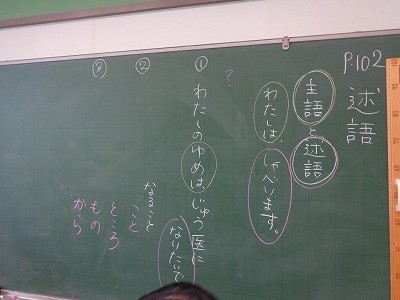 P.102
述語
主語と述語
わたしは、しゃべります。
?
① わたしのゆめは、じゅう医に なりたいで
②
なること
こと
ところ
もの
から
③